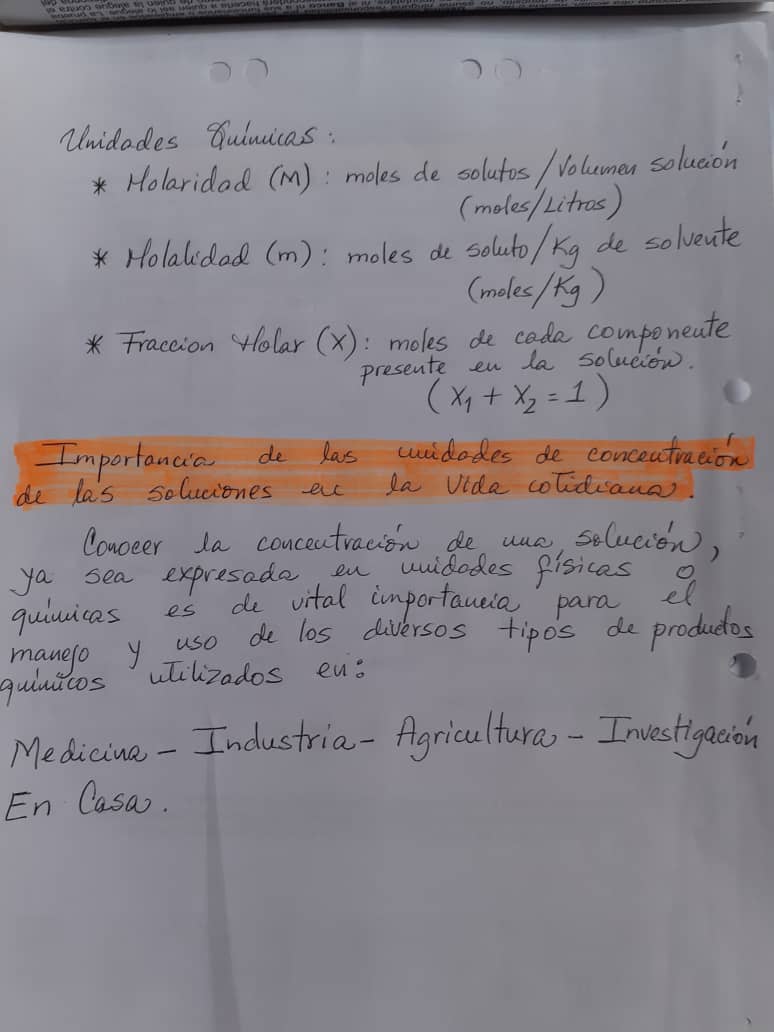 Unidades Químicas:
* Molaridad (M): moles de solutos/Volumen solución
(moles/Litros)
* Molalidad (m): moles de soluto/Kg de solvente
(moles/Kg)
* Fraccion Molar (X): moles de cada componente
presente en la solución.
(X₁ + X₂ = 1)
Importancia de las unidades de concentración
de las soluciones en la vida cotidiana.
Conocer la concentración de una solución,
ya sea expresada en unidades físicas o
químicas es de vital importancia para el
manejo y uso de los diversos tipos de productos
químicos utilizados en:
Medicina - Industria - Agricultura - Investigación
En Casa.